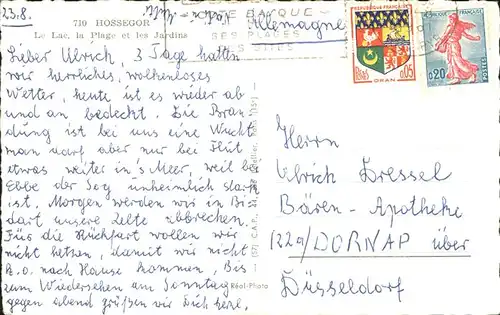 23.8.
710 HOSSEGOR
Le Lac, la Plage et les Jardins
Allemagne
Lieber Ulrich, 3 Tage hatten
wir herrliches, wolkenloses
Wetter, heute ist es wieder ab
und an bedeckt. Die Bran
dung ist bei uns eine Wucht
man darf aber nur bei Flut
etwas weiter in's Meer, weil bei
Ebbe der Sog unheimlich stark
ist. Morgen werden wir in Bi
dart unsere Zelte abbrechen.
Für die Rückfahrt wollen wir
nicht hetzen, damit wir nicht
k.o. nach Hause kommen, Bis
zum Wiedersehen am Sonntag
gegen abend grüßen wir Dich herzl.
Réal-Photo
RÉPUBLIQUE FRANÇAISE
POSTES
0,05
ORAN
0,20
POSTES
Herrn
Ulrich Dressel
Bären-Apotheke
122a/DORNAP über
Düsseldorf